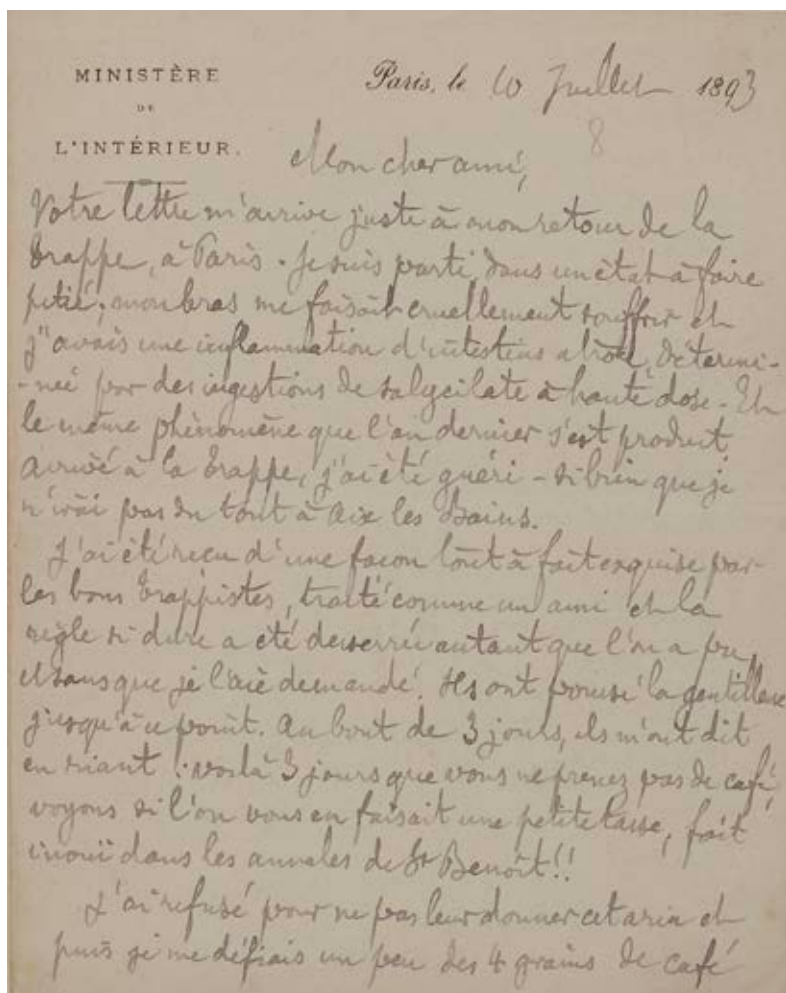 MINISTÈRE
DE
L'INTÉRIEUR.
Paris, le 10 Juillet 1893
8
Mon cher ami,
Votre lettre m'arrive juste à mon retour de la
Trappe, à Paris. Je suis parti, dans un état à faire
pitié; mon bras me faisait cruellement souffrir et
j'avais une inflammation d'intestins atroce, détermi-
-née par des ingestions de salycilate à haute dose. Et
le même phénomène que l'an dernier s'est produit,
arrivé à la Trappe, j'ai été guéri - si bien que je
n'irai pas du tout à Aix les Bains.
J'ai été reçu d'une façon tout à fait exquise par
les bons Trappistes, traité comme un ami et la
règle si dure a été desserrée autant que l'on a pu,
et sans que je l'aie demandé. Ils ont poussé la gentillesse
jusqu'à ce point. Au bout de 3 jours, ils m'ont dit
en riant : voilà 3 jours que vous ne prenez pas de café,
voyons si l'on vous en faisait une petite tasse, fait
inouï dans les annales de St Benoît!!
J'ai refusé pour ne pas leur donner cet aria et
puis je me défiais un peu des 4 grains de café